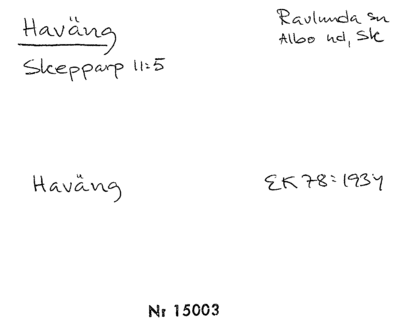 Haväng
Ravlunda sn
Albo hd, Sk
Skepparp 11:5
Haväng
EK 78:1934
Nr 15003